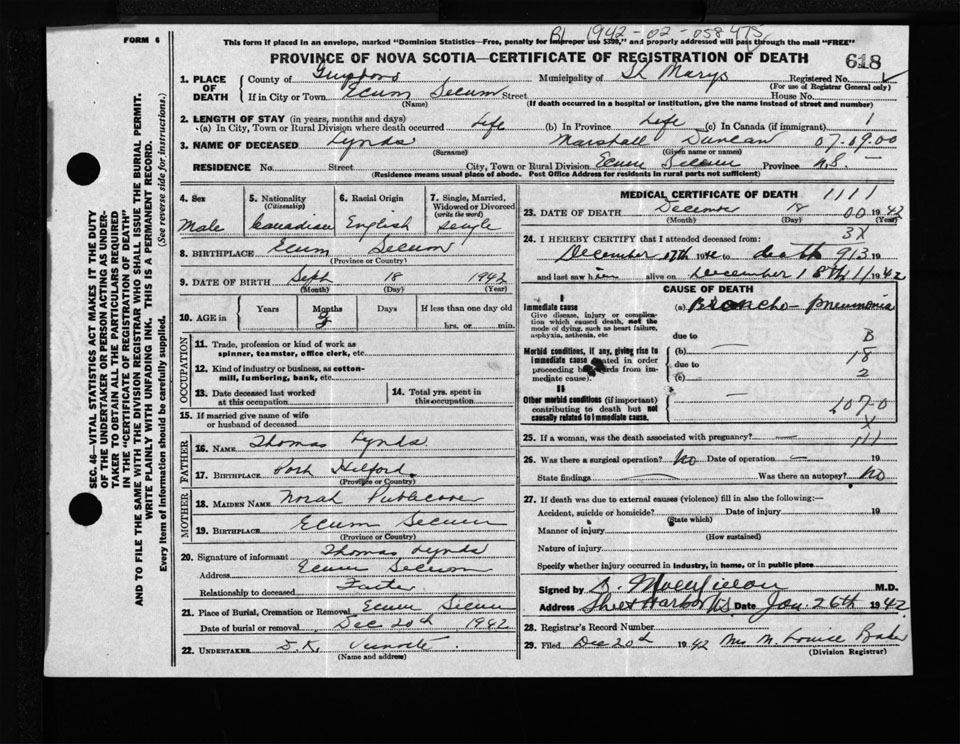 RJ 1942-02-058475
FORM 6
This form if placed in an envelope, marked "Dominion Statistics—Free, penalty for improper use $300," and properly addressed will pass through the mail "FREE"
PROVINCE OF NOVA SCOTIA—CERTIFICATE OF REGISTRATION OF DEATH
618
1. PLACE OF DEATH
County of Guysboro Municipality of St Marys Registered No.
(For use of Registrar General only)
If in City or Town Ecum Secum Street House No.
(Name) (If death occurred in a hospital or institution, give the name instead of street and number)
2. LENGTH OF STAY (in years, months and days)
(a) In City, Town or Rural Division where death occurred Life (b) In Province Life (c) In Canada (if immigrant) 1
3. NAME OF DECEASED Lynds Marshall Duncan 07.09.00
(Surname) (Given name or names)
RESIDENCE No. Street City, Town or Rural Division Ecum Secum Province NS —
(Residence means usual place of abode. Post Office Address for residents in rural parts not sufficient)
4. Sex
Male
5. Nationality
(Citizenship)
Canadian
6. Racial Origin
English
7. Single, Married, Widowed or Divorced
(write the word)
Single
8. BIRTHPLACE Ecum Secum
(Province or Country)
9. DATE OF BIRTH Sept 18 1942
(Month) (Day) (Year)
10. AGE in Years Months Days If less than one day old
3
hrs. or min.
OCCUPATION
11. Trade, profession or kind of work as spinner, teamster, office clerk, etc.
12. Kind of industry or business, as cotton-mill, lumbering, bank, etc.
13. Date deceased last worked at this occupation
14. Total yrs. spent in this occupation
15. If married give name of wife or husband of deceased
FATHER
16. NAME Thomas Lynds
17. BIRTHPLACE Port Hilford
(Province or Country)
MOTHER
18. MAIDEN NAME Norah Publicover
19. BIRTHPLACE Ecum Secum
(Province or Country)
20. Signature of informant Thomas Lynds
Address Ecum Secum
Relationship to deceased Father
21. Place of Burial, Cremation or Removal Ecum Secum
Date of burial or removal Dec 20th 1942
22. UNDERTAKER
(Name and address)
MEDICAL CERTIFICATE OF DEATH 1111
23. DATE OF DEATH December 18 00 1942
(Month) (Day) (Year)
3X
24. I HEREBY CERTIFY that I attended deceased from:
December 17th 1942 to death 913 19
and last saw him alive on December 18th 11 1942
CAUSE OF DEATH
I
Immediate cause
Give disease, injury or complication which caused death, not the mode of dying, such as heart failure, asphyxia, asthenia, etc
(a) Broncho-Pneumonia
due to B
Morbid conditions, if any, giving rise to immediate cause (stated in order proceeding backwards from immediate cause).
(b) — 18
due to 2
(c) —
II
Other morbid conditions (if important) contributing to death but not causally related to immediate cause.
—
1070
X
25. If a woman, was the death associated with pregnancy? — 111
26. Was there a surgical operation? No Date of operation —
State findings — Was there an autopsy? No
27. If death was due to external causes (violence) fill in also the following:—
Accident, suicide or homicide? Date of injury 19
(State which)
Manner of injury
(How sustained)
Nature of injury
Specify whether injury occurred in industry, in home, or in public place
Signed by M.D.
Address Sheet Harbor NS Date Jan. 26th 1942
28. Registrar's Record Number
29. Filed Dec 20th 1942 Mrs M. Louise Baker
(Division Registrar)
SEC. 46—VITAL STATISTICS ACT MAKES IT THE DUTY OF THE UNDERTAKER OR PERSON ACTING AS UNDERTAKER TO OBTAIN ALL THE PARTICULARS REQUIRED IN THE "CERTIFICATE OF REGISTRATION OF DEATH" AND TO FILE THE SAME WITH THE DIVISION REGISTRAR WHO SHALL ISSUE THE BURIAL PERMIT.
WRITE PLAINLY WITH UNFADING INK. THIS IS A PERMANENT RECORD.
Every item of information should be carefully supplied. (See reverse side for instructions.)